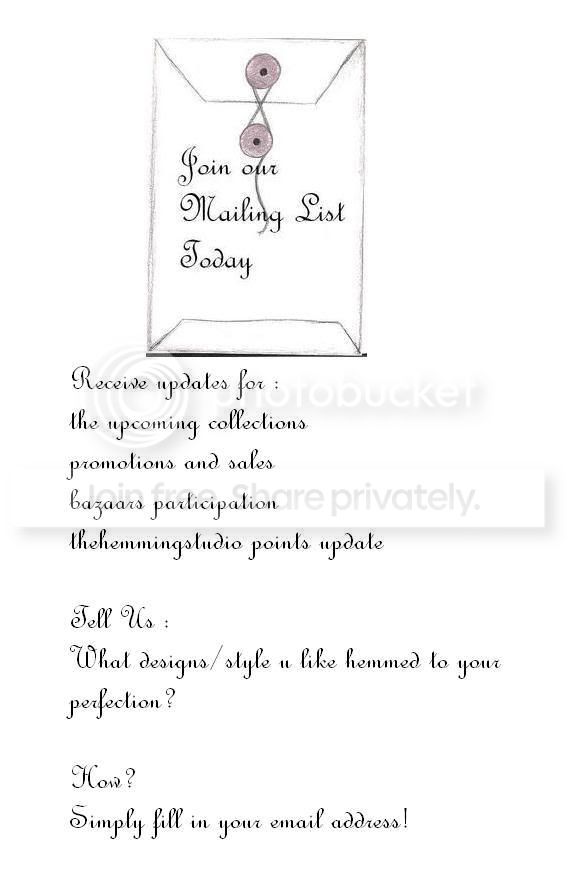 Join our
Mailing List
Today
Receive updates for :
photobucket
the upcoming collections
promotions and sales
Join free. Share privately.
bazaars participation
thehemmingstudio points update
Tell Us :
What designs/style u like hemmed to your
perfection?
How?
Simply fill in your email address!